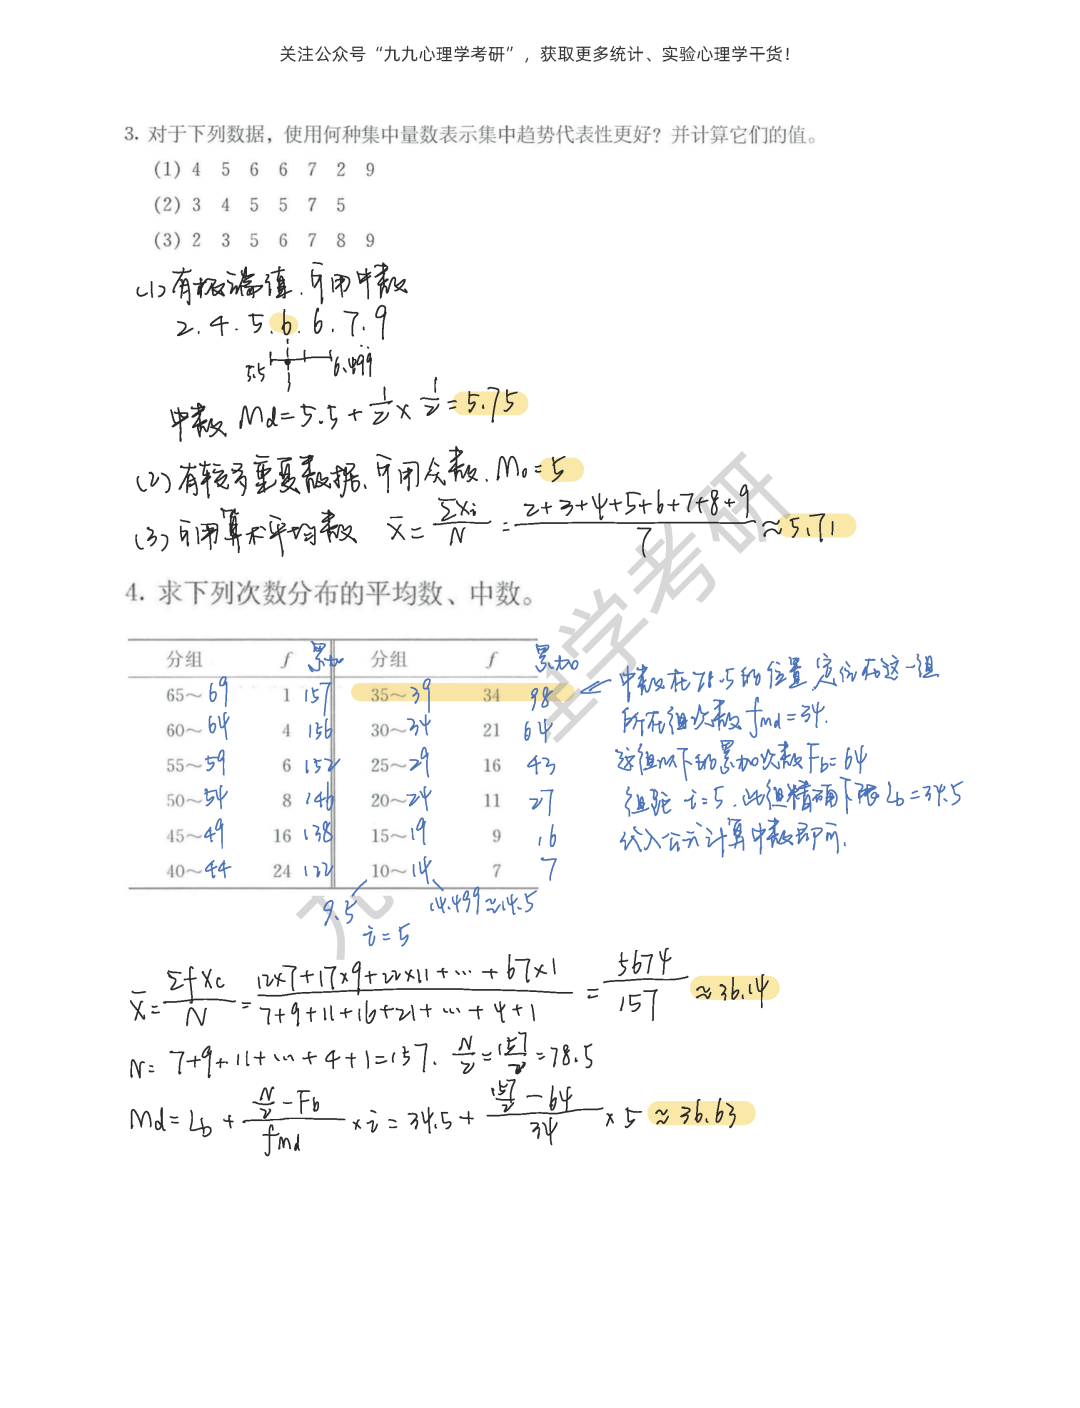 关注公众号“九九心理学考研”，获取更多统计、实验心理学干货！
3. 对于下列数据，使用何种集中量数表示集中趋势代表性更好？并计算它们的值。
(1) 4 5 6 6 7 2 9
(2) 3 4 5 5 7 5
(3) 2 3 5 6 7 8 9
(1) 有极端值，可用中数
2. 4. 5. 6. 6. 7. 9
5.5 6.499
中数 Md = 5.5 + 1/2 × 1/2 = 5.75
(2) 有较多重复数据，可用众数. Mo = 5
(3) 可用算术平均数 X̄ = ΣXi/N = 2+3+4+5+6+7+8+9/7 ≈ 5.71
4. 求下列次数分布的平均数、中数。
分组 f 累加 分组 f 累加
65～69 1 157 35～39 34 98
60～64 4 156 30～34 21 64
55～59 6 152 25～29 16 43
50～54 8 146 20～24 11 27
45～49 16 138 15～19 9 16
40～44 24 122 10～14 7 7
9.5 14.499≈14.5
i=5
中数在78.5的位置，定位在这一组
所在组次数 fmd = 34.
该组以下的累加次数 Fb = 64
组距 i=5. 此组精确下限 Lb = 34.5
代入公式计算中数即可.
X̄ = ΣfXc/N = 12×7+17×9+22×11+…+67×1/7+9+11+16+21+…+4+1 = 5674/157 ≈ 36.14
N = 7+9+11+…+4+1 = 157. N/2 = 157/2 = 78.5
Md = Lb + (N/2 - Fb)/fmd × i = 34.5 + (157/2 - 64)/34 × 5 ≈ 36.63
九 理学考研